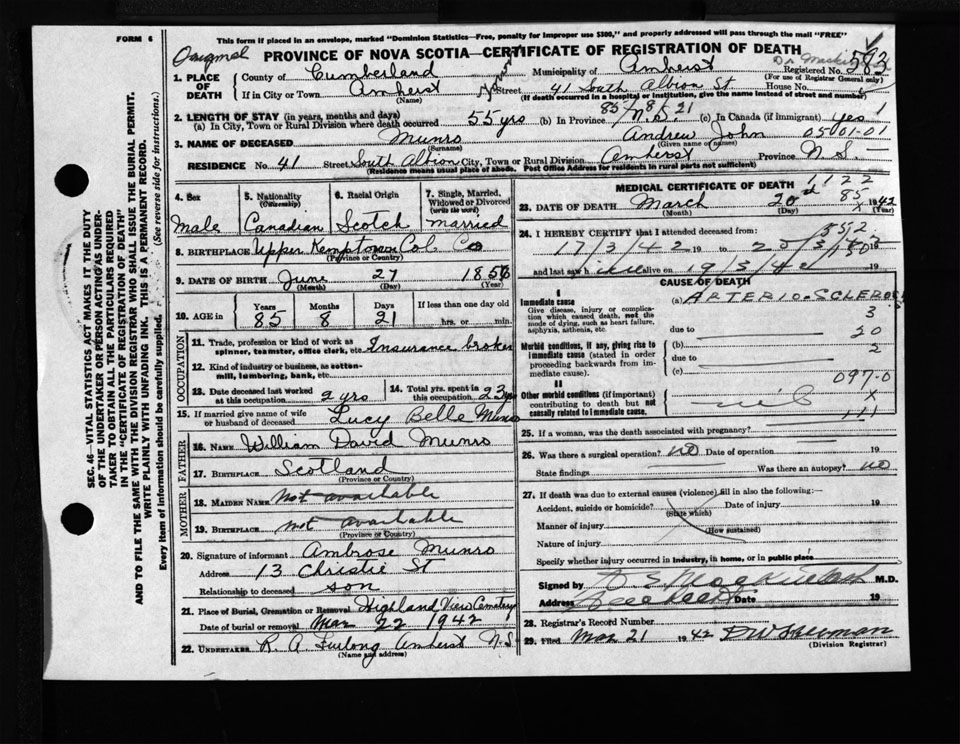 FORM 6
This form if placed in an envelope, marked "Dominion Statistics—Free, penalty for improper use $300," and properly addressed will pass through the mail "FREE"
Original
PROVINCE OF NOVA SCOTIA—CERTIFICATE OF REGISTRATION OF DEATH
Registered No. 593
(For use of Registrar General only)
1. PLACE OF DEATH
County of Cumberland Municipality of Amherst
If in City or Town Amherst Street 41 South Albion St. House No.
(Name) (If death occurred in a hospital or institution, give the name instead of street and number)
85/8/21
2. LENGTH OF STAY (in years, months and days)
(a) In City, Town or Rural Division where death occurred 55 yrs (b) In Province N.S. (c) In Canada (if immigrant) yes 1
3. NAME OF DECEASED Munro Andrew John 05-01-01
(Surname) (Given name or names)
RESIDENCE No. 41 Street South Albion City, Town or Rural Division Amherst Province N.S.
(Residence means usual place of abode. Post Office Address for residents in rural parts not sufficient)
4. Sex Male
5. Nationality (Citizenship) Canadian
6. Racial Origin Scotch
7. Single, Married, Widowed or Divorced (write the word) married
8. BIRTHPLACE Upper Kemptown Col. Co
(Province or Country)
9. DATE OF BIRTH June 27 1856
(Month) (Day) (Year)
10. AGE in Years 85 Months 8 Days 21 If less than one day old hrs. or min.
OCCUPATION
11. Trade, profession or kind of work as spinner, teamster, office clerk, etc. Insurance broker
12. Kind of industry or business, as cotton-mill, lumbering, bank, etc.
13. Date deceased last worked at this occupation 2 yrs
14. Total yrs. spent in this occupation 23 yrs
15. If married give name of wife or husband of deceased Lucy Belle Munro
FATHER
16. NAME William David Munro
17. BIRTHPLACE Scotland
(Province or Country)
MOTHER
18. MAIDEN NAME Not available
19. BIRTHPLACE not available
(Province or Country)
20. Signature of informant Ambrose Munro
Address 13 Christie St
Relationship to deceased son
21. Place of Burial, Cremation or Removal Highland View Cemetery
Date of burial or removal Mar 22 1942
22. UNDERTAKER R. A. Furlong Amherst N.S
(Name and address)
MEDICAL CERTIFICATE OF DEATH 1122
23. DATE OF DEATH March 20 1942
(Month) (Day) (Year)
24. I HEREBY CERTIFY that I attended deceased from:
17/3/42 19 to
and last saw h alive on 19/3/42 19
CAUSE OF DEATH
I
Immediate cause
Give disease, injury or complication which caused death, not the mode of dying, such as heart failure, asphyxia, asthenia, etc.
(a) ARTERIO-SCLEROSIS
3
due to 20
Morbid conditions, if any, giving rise to immediate cause (stated in order proceeding backwards from immediate cause).
(b) 2
due to
(c)
097-0
II
Other morbid conditions (if important) contributing to death but not causally related to immediate cause. nil
X
111
25. If a woman, was the death associated with pregnancy?
26. Was there a surgical operation? NO Date of operation 19
State findings Was there an autopsy? NO
27. If death was due to external causes (violence) fill in also the following:—
Accident, suicide or homicide? Date of injury 19
(State which)
Manner of injury
(How sustained)
Nature of injury
Specify whether injury occurred in industry, in home, or in public place
Signed by M.D.
Address Date 19
28. Registrar's Record Number
29. Filed Mar 21 1942
(Division Registrar)
SEC. 46—VITAL STATISTICS ACT MAKES IT THE DUTY OF THE UNDERTAKER OR PERSON ACTING AS UNDERTAKER TO OBTAIN ALL THE PARTICULARS REQUIRED IN THE "CERTIFICATE OF REGISTRATION OF DEATH"
AND TO FILE THE SAME WITH THE DIVISION REGISTRAR WHO SHALL ISSUE THE BURIAL PERMIT.
WRITE PLAINLY WITH UNFADING INK. THIS IS A PERMANENT RECORD.
Every item of information should be carefully supplied. (See reverse side for instruction).